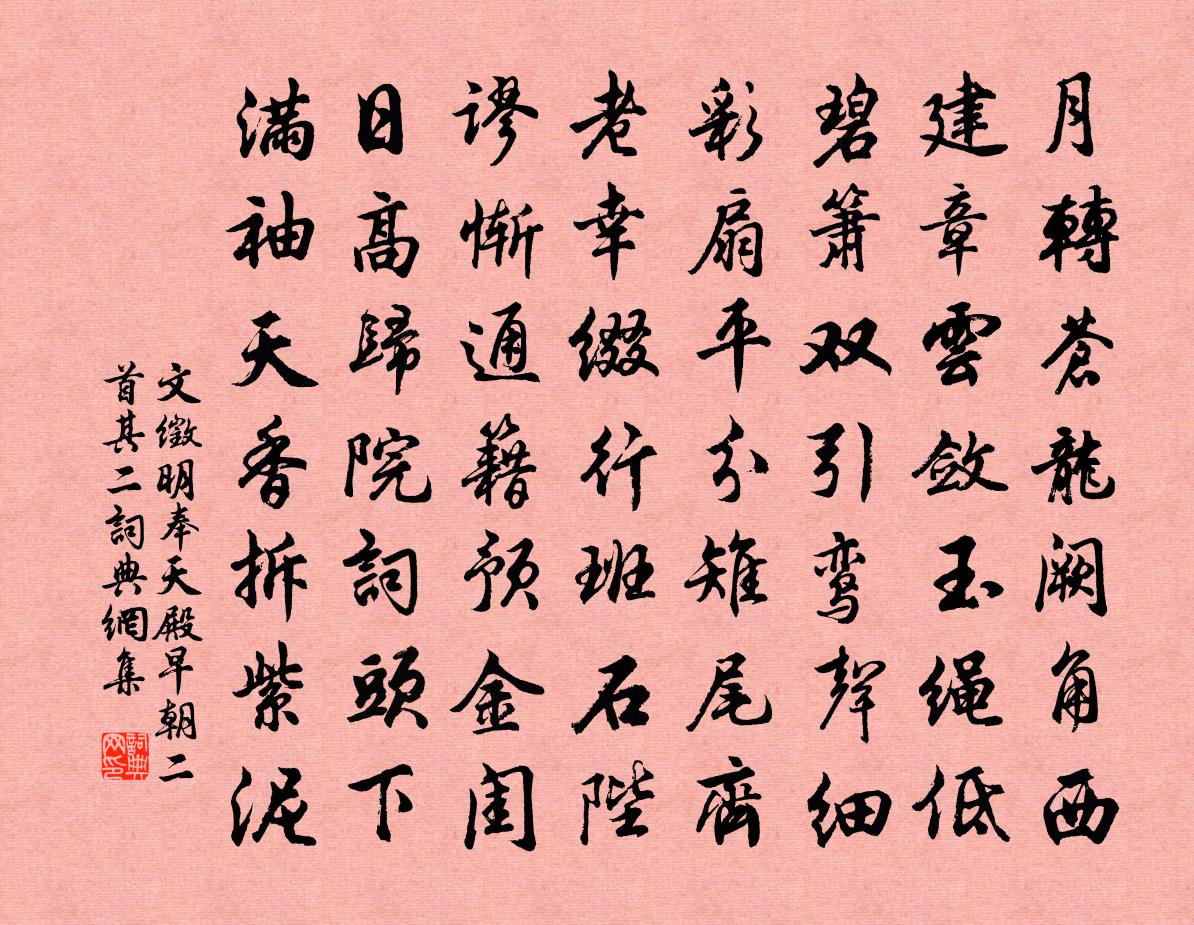 月轉蒼龍闕角西
建章雲斂玉繩低
碧簫双引鸾聲細
彩扇平分雉尾齊
老幸綴行班石陛
謬慚通籍預金闺
日高歸院詞頭下
满袖天香拆紫泥
文徵明奉天殿早朝二
首其二詞典網集
詞典网印